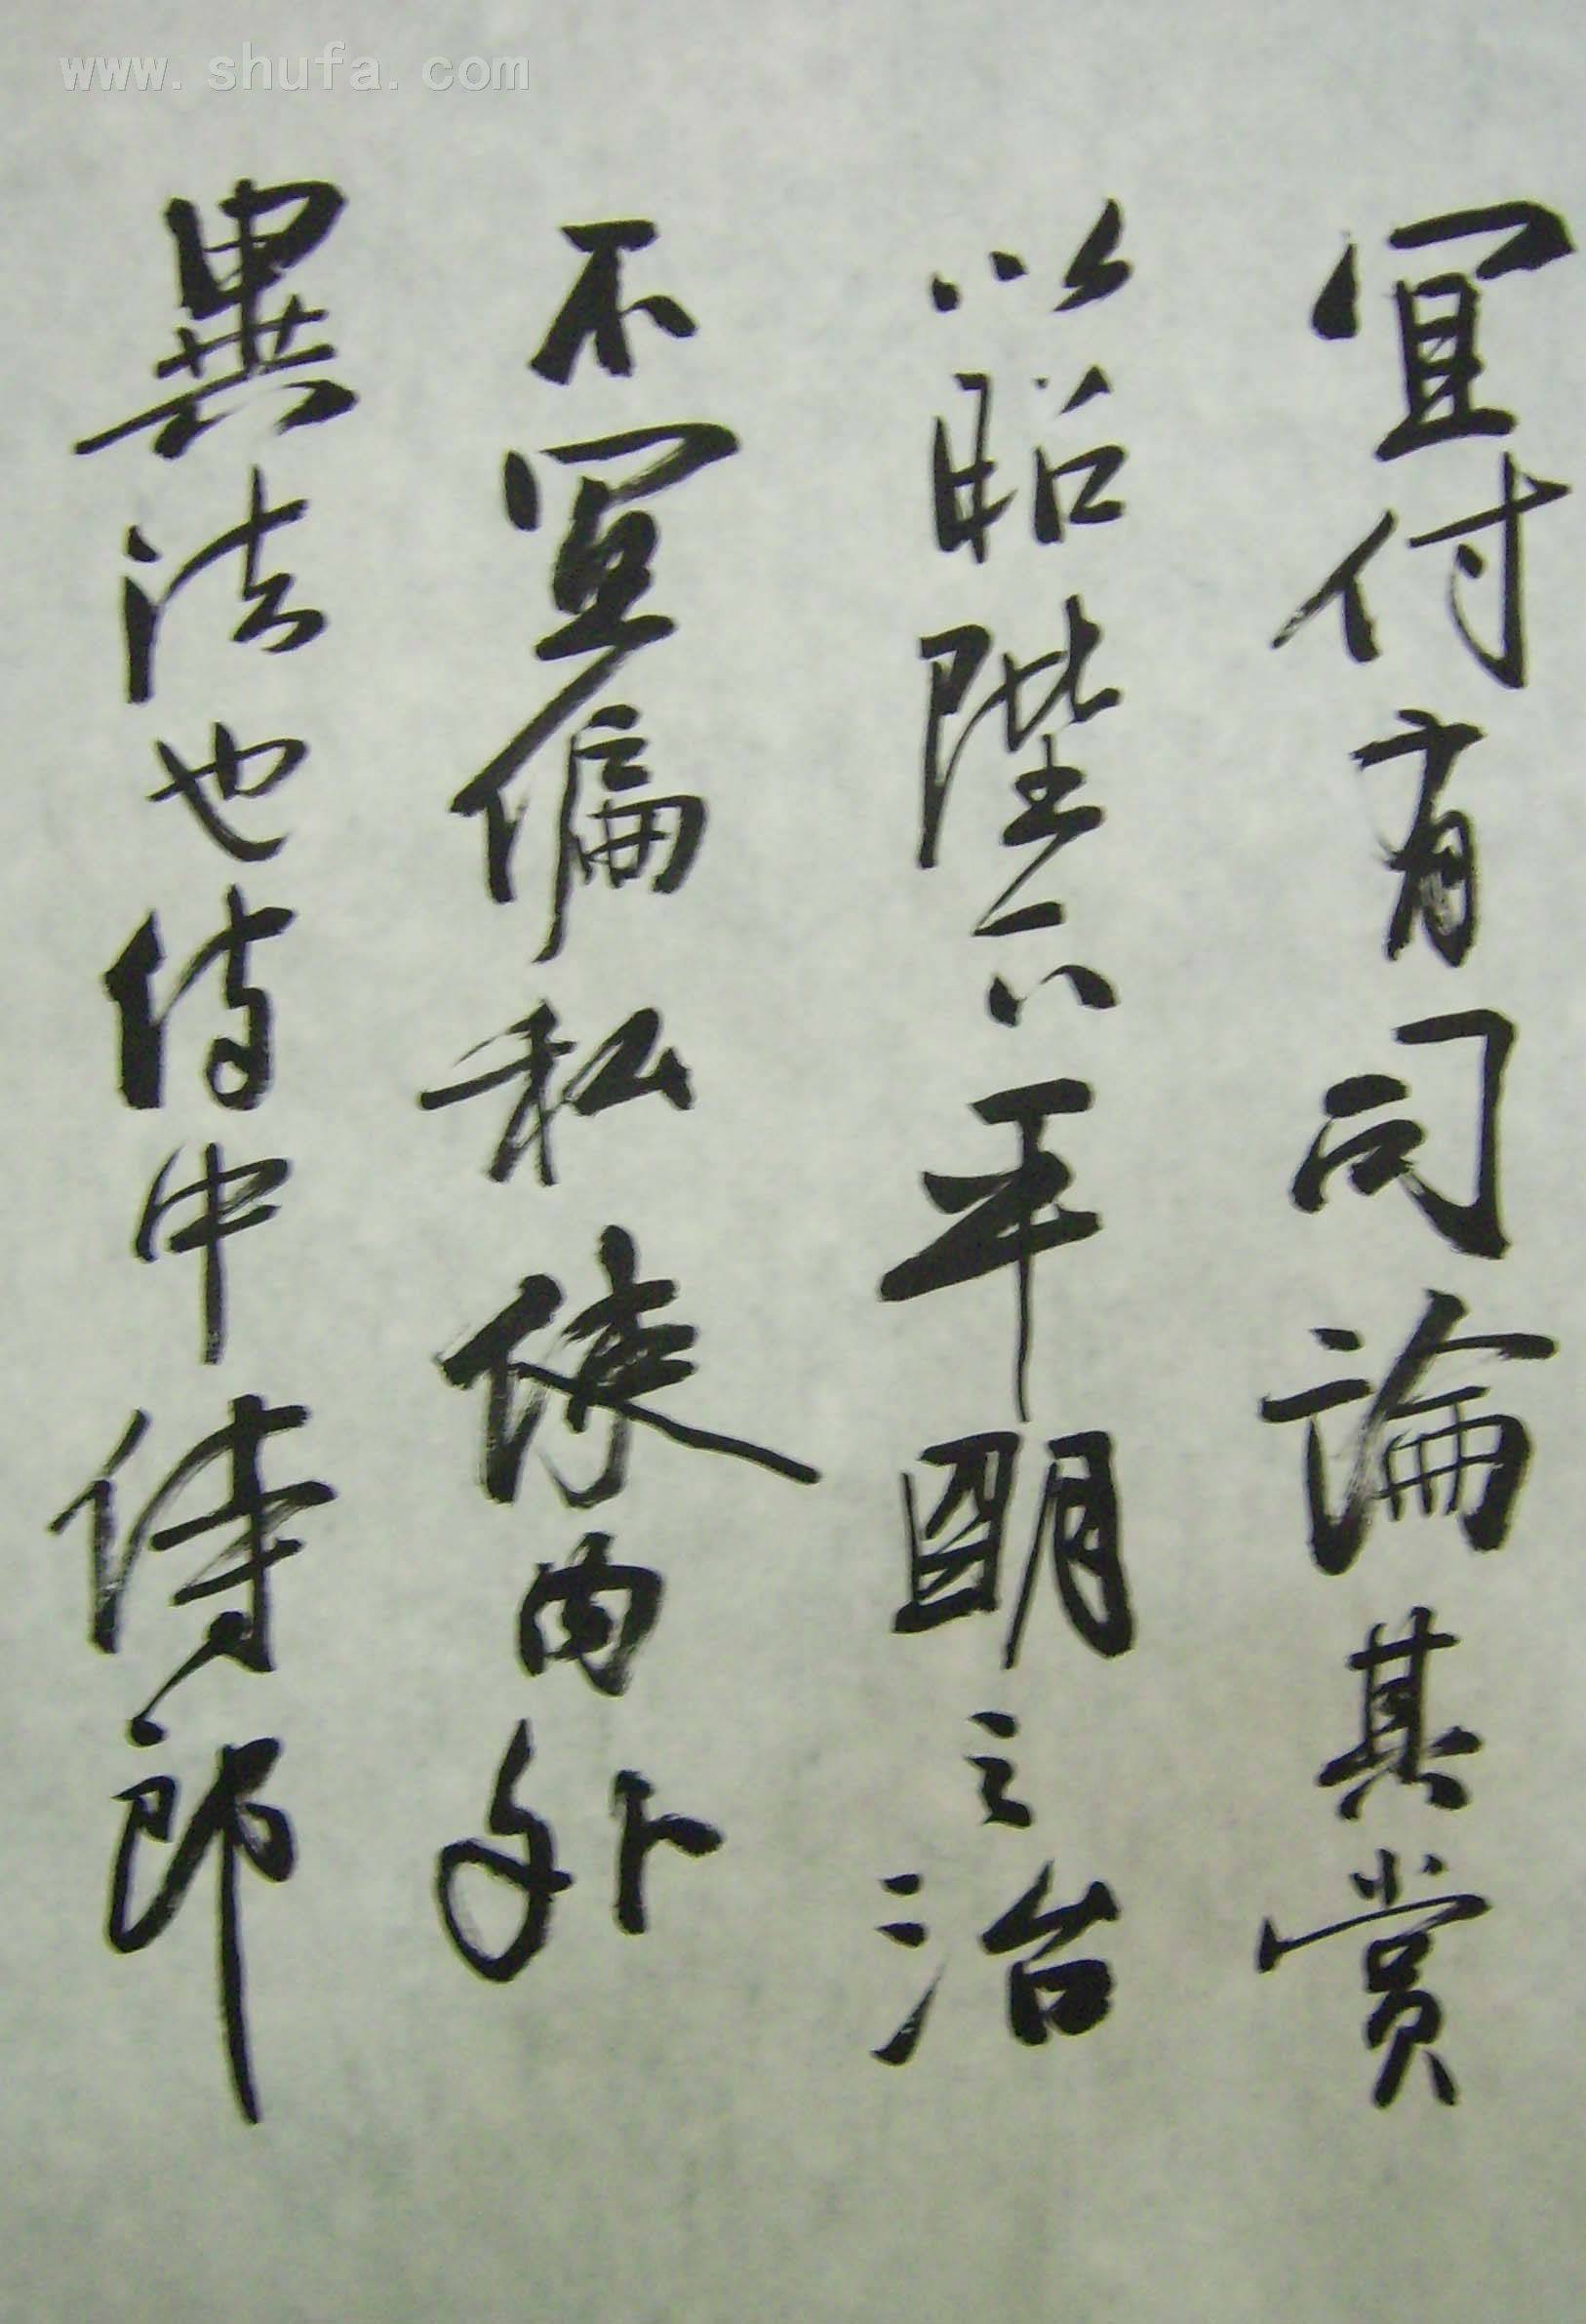 www.shufa.com
宜付有司論其賞
以昭陛下平明之治
不宜偏私使内外
異法也侍中侍郎